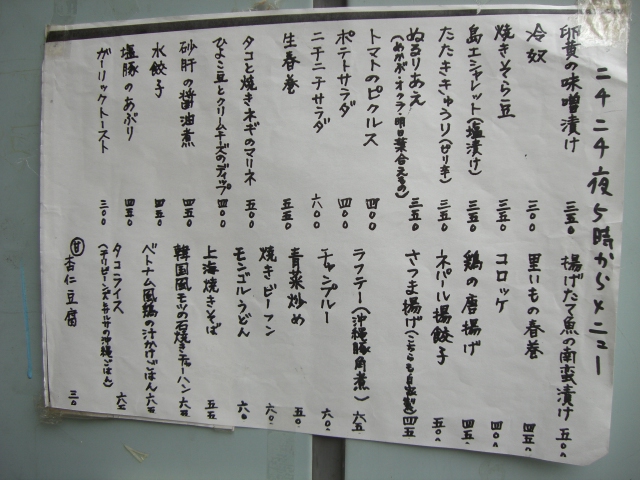 ニチニチ夜5時からメニュー
卵黄の味噌漬け 三五〇
冷奴 三〇〇
焼きそら豆 三五〇
島エシャレット(塩漬け) 三五〇
たたききゅうり(ピリ辛) 三五〇
ぬるりあえ(めかぶ・オクラ・明日葉合えもの) 三五〇
トマトのピクルス 四〇〇
ポテトサラダ 四〇〇
ニチニチサラダ 六〇〇
生春巻 五五〇
タコと焼きネギのマリネ 五〇〇
ひよこ豆とクリームチーズのディップ 四〇〇
砂肝の醤油煮 四五〇
水餃子 四五〇
塩豚のあぶり 四五〇
ガーリックトースト 三〇〇
揚げたて魚の南蛮漬け 五〇〇
里いもの春巻 四五〇
コロッケ 四〇〇
鶏の唐揚げ 四五〇
ネパール揚餃子 五〇〇
さつま揚げ(こちらも自家製) 四五
ラフテー(沖縄豚角煮) 六五
チャンプルー 六〇
青菜炒め 五〇
焼きビーフン 六〇
モンゴルうどん 六〇
上海焼きそば 五五
韓国風モズの石焼きチャーハン 六五
ベトナム風鶏の汁かけごはん 六五
タコライス(チリビーンズとサルサの沖縄ごはん) 六五
甘 杏仁豆腐 三〇